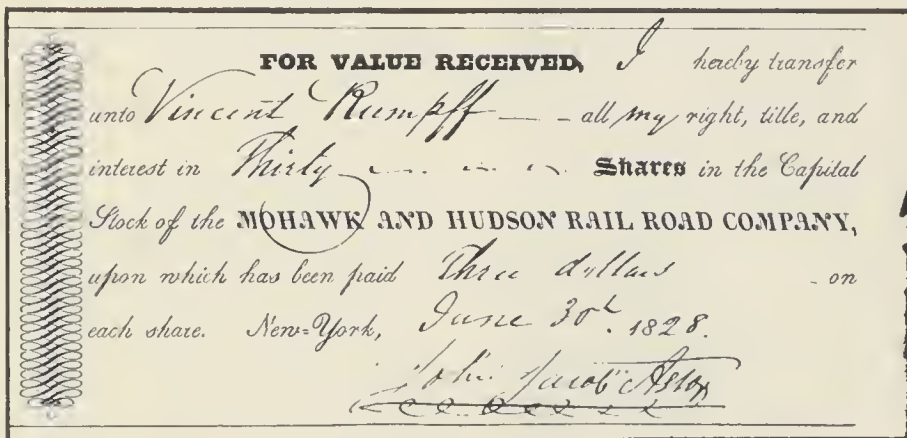 FOR VALUE RECEIVED, I hereby transfer
unto Vincent Rumpff — - all my right, title, and
interest in Thirty Shares in the Capital
Stock of the MOHAWK AND HUDSON RAIL ROAD COMPANY,
upon which has been paid Three dollars - on
each share. New=York, June 30th 1828.
John Jacob Astor